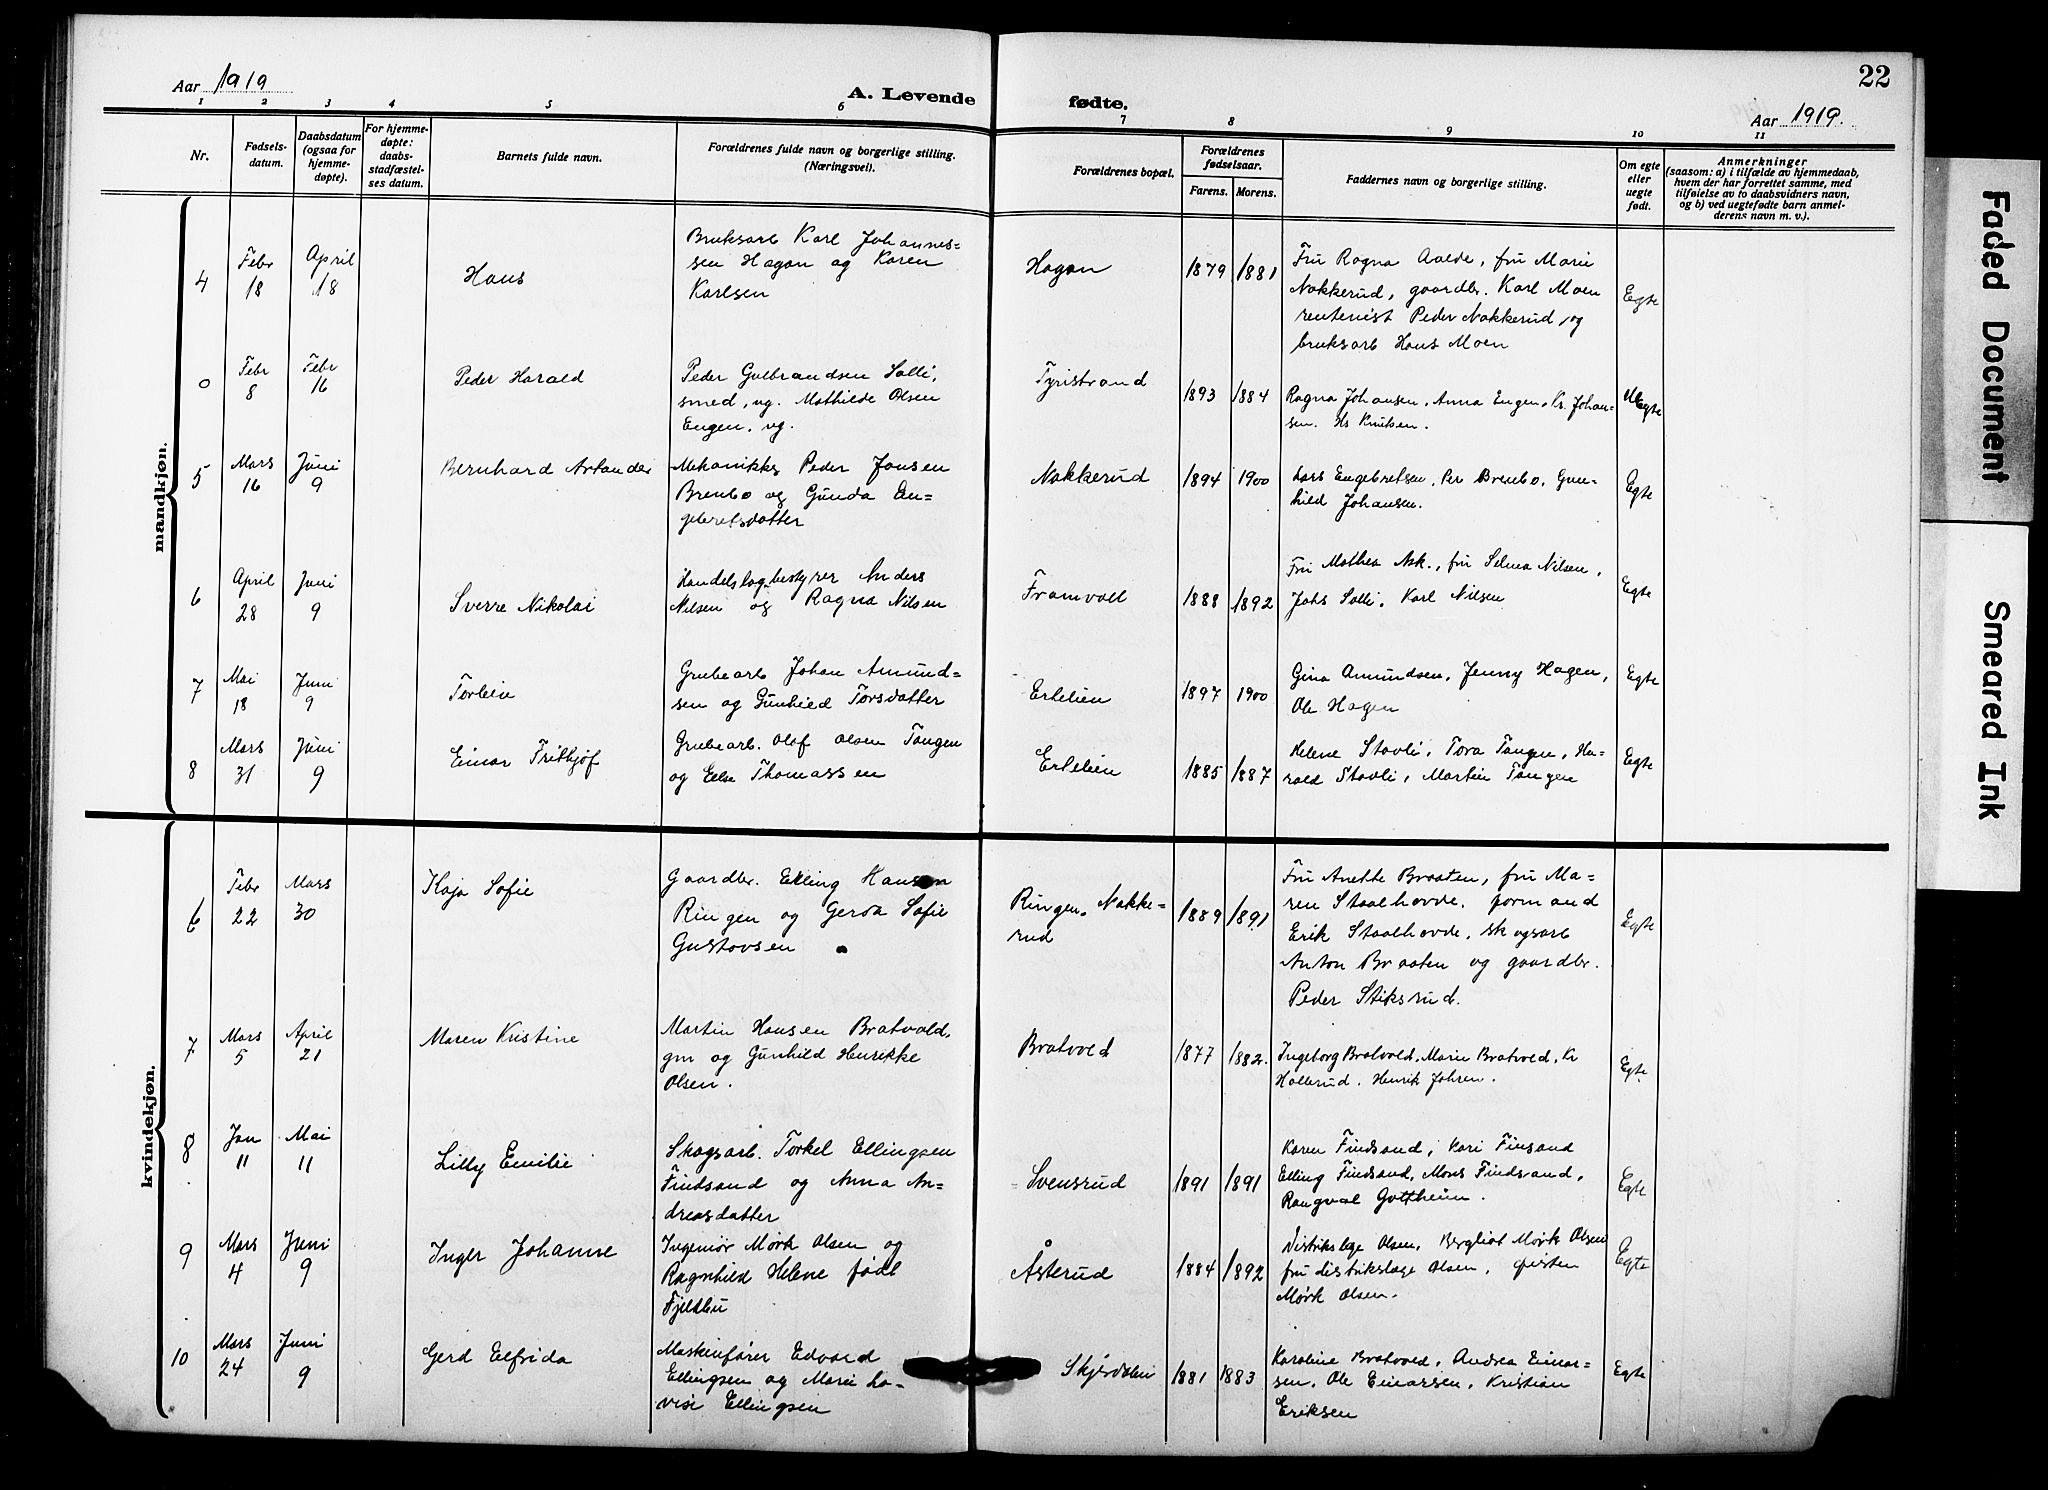 22
Aar 1919
A. Levende fødte.
Aar 1919.
1 2 3 4 5 6 7 8 9 10 11
Nr.
Fødsels-
datum.
Daabsdatum
(ogsaa for
hjemme-
døpte).
For hjemme-
døpte:
daabs-
stadfæstel-
ses datum.
Barnets fulde navn.
Forældrenes fulde navn og borgerlige stilling.
(Næringsvei).
Forældrenes bopæl.
Forældrenes
fødselsaar.
Farens. Morens.
Faddernes navn og borgerlige stilling.
Om egte
eller
uegte
født.
Anmerkninger
(saasom: a) i tilfælde av hjemmedaab,
hvem der har forrettet samme, med
tilføielse av to daabsvidners navn,
og b) ved uegtefødte barn anmel-
derens navn m. v.).
mandkjøn.
4
Febr
18
April
18
Hans
Bruksarb Karl Johannes-
sen Hagan og Karen
Karlsen
Hagan
1879 1881
Fru Ragna Aalde, fru Marie
Nakkerud, gaardbr. Karl Moen
rentenist Peder Nakkerud, og
bruksarb Hans Moen
Egte
0
Febr
8
Febr
16
Peder Harald
Peder Gulbrandsen Solli,
smed, ug. Mathilde Olsen
Engen, ug.
Tyristrand
1893 1884
Ragna Johansen, Anna Engen, Kr. Johan-
sen. Hs Knutsen.
Uegte
5
Mars
16
Juni
9
Bernhard Arlander
Mekanikks Peder Jonsen
Brenbo og Gunda En-
gebretsdatter
Nakkerud
1894 1900
Lars Engebretsen, Per Brenbo, Gun-
hild Johansen.
Egte
6
April
28
Juni
9
Sverre Nikolai
Handelslagbestyrer Anders
Nilsen og Ragna Nilsen
Framvoll
1888 1892
Fru Mathea Ask., fru Selma Nilsen,
Johs Solli, Karl Nilsen
Egte
7
Mai
18
Juni
9
Torlein
Grubearb Johan Amund-
sen og Gunhild Torsdatter
Ertelien
1897 1900
Gina Amundsen, Jenny Hagen,
Ole Hagen
Egte
8
Mars
31
Juni
9
Einar Fritbjof
Grubearb. Olaf Olsen Tangen
og Elen Thomassen
Ertelien
1885 1887
Helene Stavli, Tora Tangen, Ha-
rald Stavli, Martin Tangen
Egte
kvindekjøn.
6
Febr
22
Mars
30
Kaja Sofie
Gaardbr. Elling Hansen
Ringen og Gerda Sofie
Gustavsen
Ringen, Nakke-
rud
1889 1891
Fru Anette Braaten, fru Ma-
ren Staalhovde, formand
Erik Staalhovde, skogsarb
Anton Braaten og gaardbr.
Peder Stiksrud.
Egte
7
Mars
5
April
21
Maren Kristine
Martin Hansen Bratvold,
gm og Gunhild Henrikke
Olsen.
Bratvold
1877 1882.
Ingeborg Bratvold, Marie Bratvold, Kr
Hollerud, Henrik Johsen.
Egte
8
Jan
11
Mai
11
Lilly Emilie
Skogsarb. Torkel Ellingsen
Findsand og Anna An-
dreasdatter
Svensrud
1891 1891
Karen Findsand, Kari Finsand
Elling Findsand, Mons Findsand,
Rangval Gottheim.
Egte
9
Mars
4
Juni
9
Inger Johanne
Ingeniør Mørk Olsen og
Ragnhild Helene født
Fjeldbu
Åsterud
1884 1892
Distrikslæge Olsen, Bergliot Mørk Olsen
fru distrikslæge Olsen,
Mørk Olsen.
Egte
10
Mars
24
Juni
9
Gerd Elfrida
Maskinfører Edvard
Ellingsen og Marie Lo-
vise Ellingsen
Skjerdalen
1881 1883
Karoline Bratvold, Andrea Einar-
sen, Ole Einarsen, Kristian
Eriksen
Egte
Faded Document
Smeared Ink